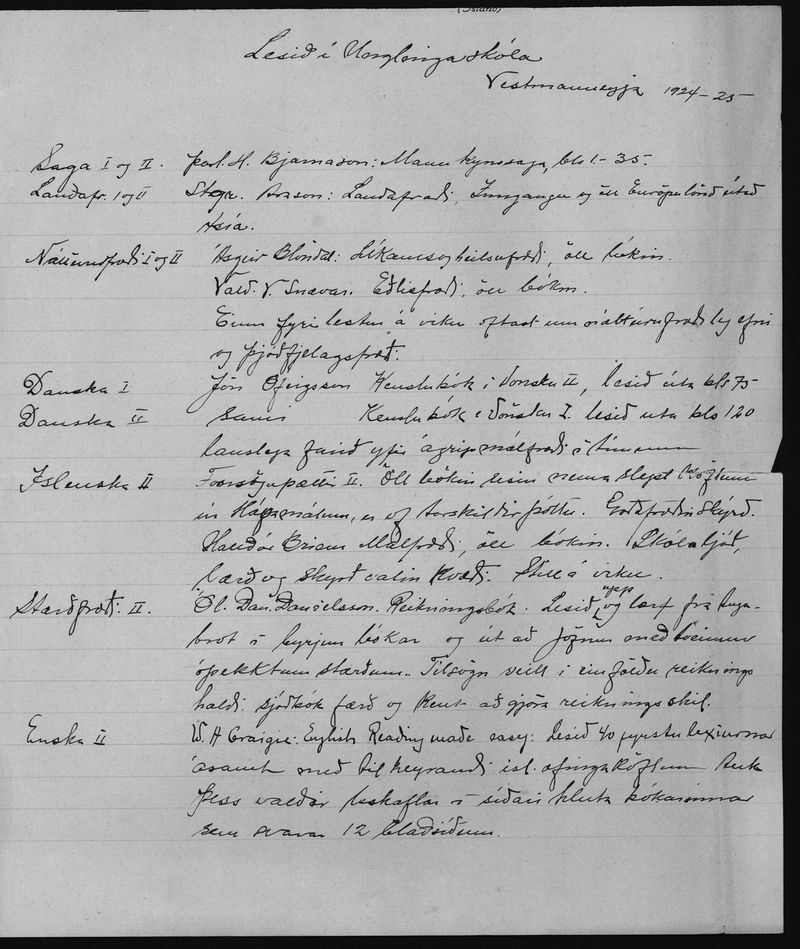 (Ísland)
Lesið í Unglingaskóla
Vestmannaeyja 1924-25
Saga I og II. Þorl. H. Bjarnason: Mannkynssaga, bls 1-35.
Landafr. I og II Stgr. Arason: Landafræði, Inngangur og öll Evrópulönd út að
Asía.
Náttúrufræði I og II Ásgeir Blöndal: Líkams og heilsufræði, öll bókin.
Vald. V. Snævar. Eðlisfræði, öll bókin.
Einn fyrirlestur á viku oftast um náttúrufræðileg efni
og þjóðfjelagsfræði.
Danska I Jón Ófeigsson Kenslubók í Dönsku II, lesið út á bls 75
Danska II sami Kenslubók í Dönsku I. lesið út á bls 120
lauslega farið yfir ágrip málfræði í tímum
Íslenska II Fornsöguþættir II. Öll bókin lesin nema slept köflum
úr Hávamálum, er of torskildir þóttu. Goðafræðin skýrð.
Halldór Briem Málfræði, öll bókin. Skólaljóð,
lærð og skýrð valin kvæði. Stíll á viku.
Stærðfræði II. Ól. Dan. Daníelsson. Reikningsbók. Lesið upp og lært frá tuga-
brot í byrjun bókar og út að jöfnum með tveimur
óþekktum stærðum. Tilsögn veitt í einföldu reiknings
haldi: sjóðbók færð og kent að gjöra reikningsskil.
Enska II W. A Craigie: English Reading made easy: Lesið 40 fyrstu lexiurnar
ásamt með tilheyrandi ísl. æfingaköflum Auk
þess valdir leskaflar í síðari hluta bókarinnar
sem svarar 12 blaðsíðum.